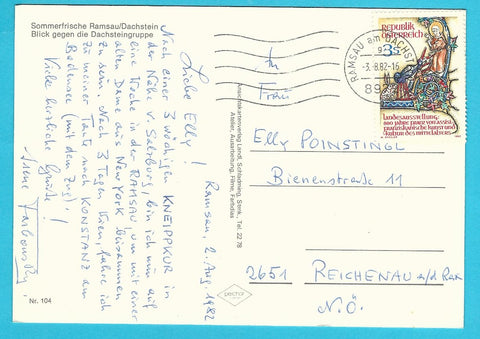 Sommerfrische Ramsau/Dachstein
Blick gegen die Dachsteingruppe
Ramsau, 2. Aug. 1982
Liebe Elly!
Nach einer 3 wöchigen KNEIPPKUR in
der Nähe v. Salzburg, bin ich nun auf
eine Woche in der RAMSAU, um mit einer
alten Dame aus New York beisammen
zu sein. Nach 3 Tagen Wien, fahre ich
zu meiner Tante nach KONSTANZ am
Bodensee (mit dem Zug).
Viele herzliche Grüße!
Nr. 104
Ansichtskartenverlag Landl, Schladming, Stmk., Tel. 22 78
Atelier, Ausarbeitung, Filme, Farbdias
RAMSAU am DACHSTEIN
-3.-8.82-16
REPUBLIK
ÖSTERREICH
3S
Landesausstellung:
800 jahre franz von assisi
franziskanische kunst und
kultur des mittelalters
An
Frau
Elly POINSTINGL
Bienenstraße 11
2651 REICHENAU a/d Rax
N.Ö.